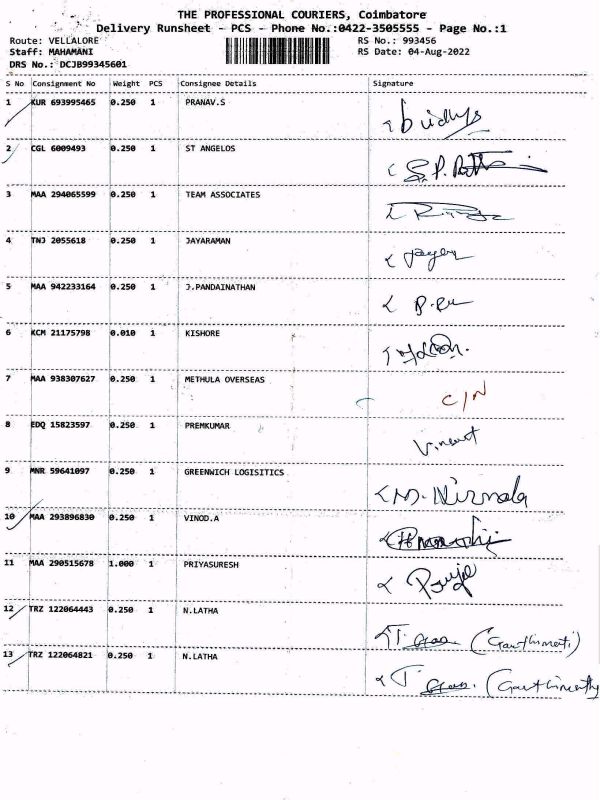 THE PROFESSIONAL COURIERS, Coimbatore
Delivery Runsheet - PCS - Phone No.:0422-3505555 - Page No.:1
Route: VELLALORE RS No.: 993456
Staff: MAHAMANI RS Date: 04-Aug-2022
DRS No.: DCJB99345601
S No Consignment No Weight PCS Consignee Details Signature
1 KUR 693995465 0.250 1 PRANAV.S
2 CGL 6009493 0.250 1 ST ANGELOS
3 MAA 294065599 0.250 1 TEAM ASSOCIATES
4 TNJ 2055618 0.250 1 JAYARAMAN
5 MAA 942233164 0.250 1 J.PANDAINATHAN
6 KCM 21175798 0.010 1 KISHORE
7 MAA 938307627 0.250 1 METHULA OVERSEAS C/N
8 EDQ 15823597 0.250 1 PREMKUMAR
9 MNR 59641097 0.250 1 GREENWICH LOGISITICS M. Nirmala
10 MAA 293896830 0.250 1 VINOD.A
11 MAA 290515678 1.000 1 PRIYASURESH
12 TRZ 122064443 0.250 1 N.LATHA
13 TRZ 122064821 0.250 1 N.LATHA